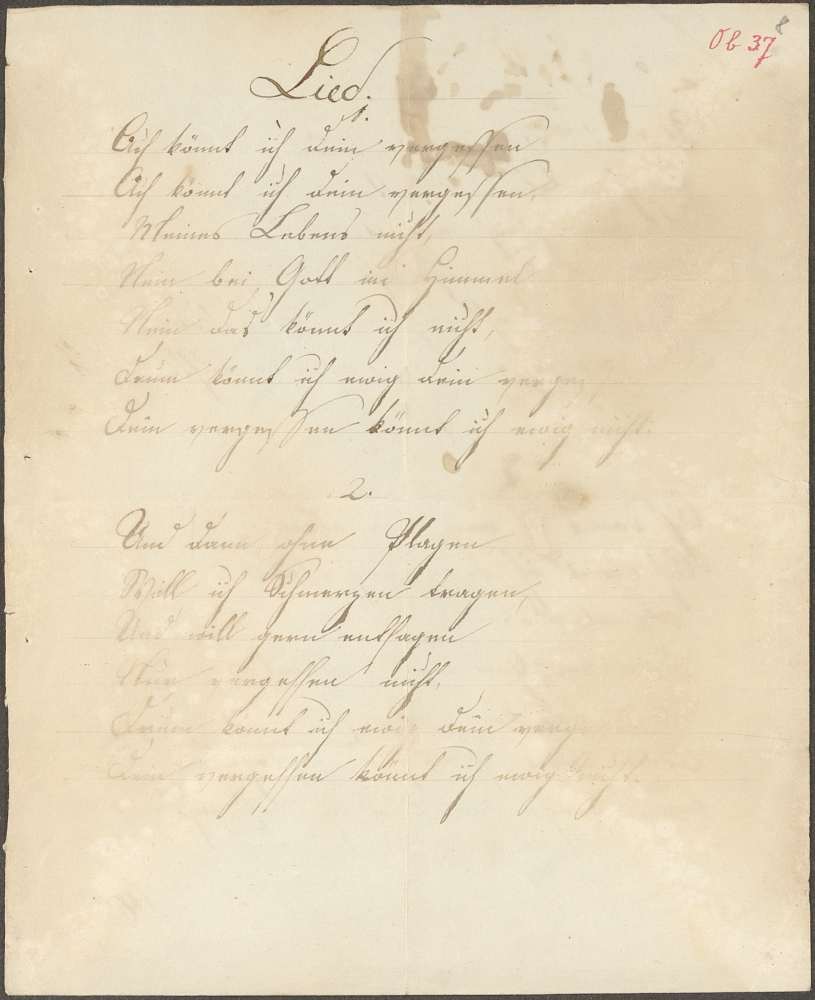 Ob 37
8
Lied.
1.
Ach könnt ich dein vergessen
Ach könnt ich dein vergessen,
Meines Lebens nicht,
Nein bei Gott im Himmel
Nein das könnt ich nicht,
Drum könnt ich ewig dein verges,
Dein vergessen könnt ich ewig nicht.
2.
Und dann ohne Plagen
Will ich Schmerzen tragen,
Und will gern entsagen
Nur vergessen nicht,
Drum könnt ich ewig dein verge
Dein vergessen könnt ich ewig nicht.